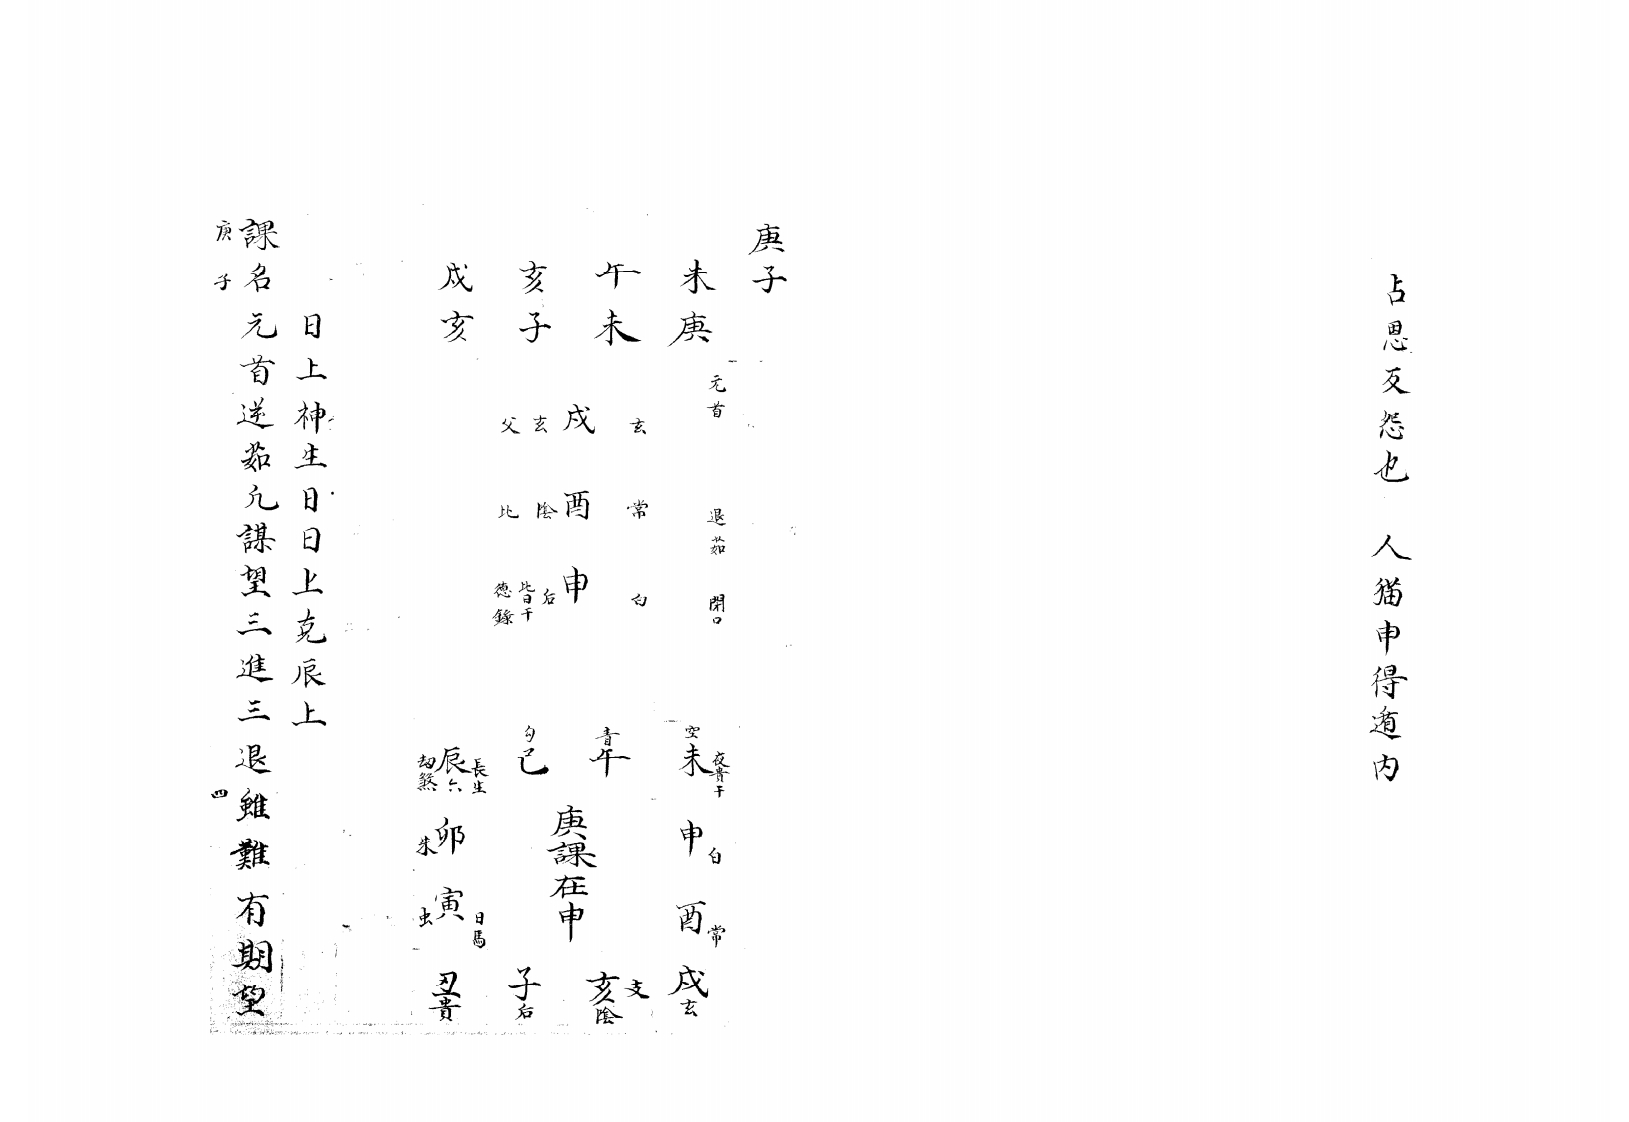 占恩反怨也 人猫申得遁内
庚子
未庚
午未
亥子
戌亥
元首 退茹 閉口
玄 常 白
戌 酉 申
玄 陰 后
父 比 比日干
德錄
空 青 勾
未 午 巳 辰
夜貴干
六
長生
劫煞
申 白
卯
朱
庚課在申
酉 常
寅
虫
日馬
戌 玄
亥 陰
支
子 后
丑 貴
日上神生日日上克辰上
課名元首逆茹凢謀望三進三退雖難有期望
庚子
四